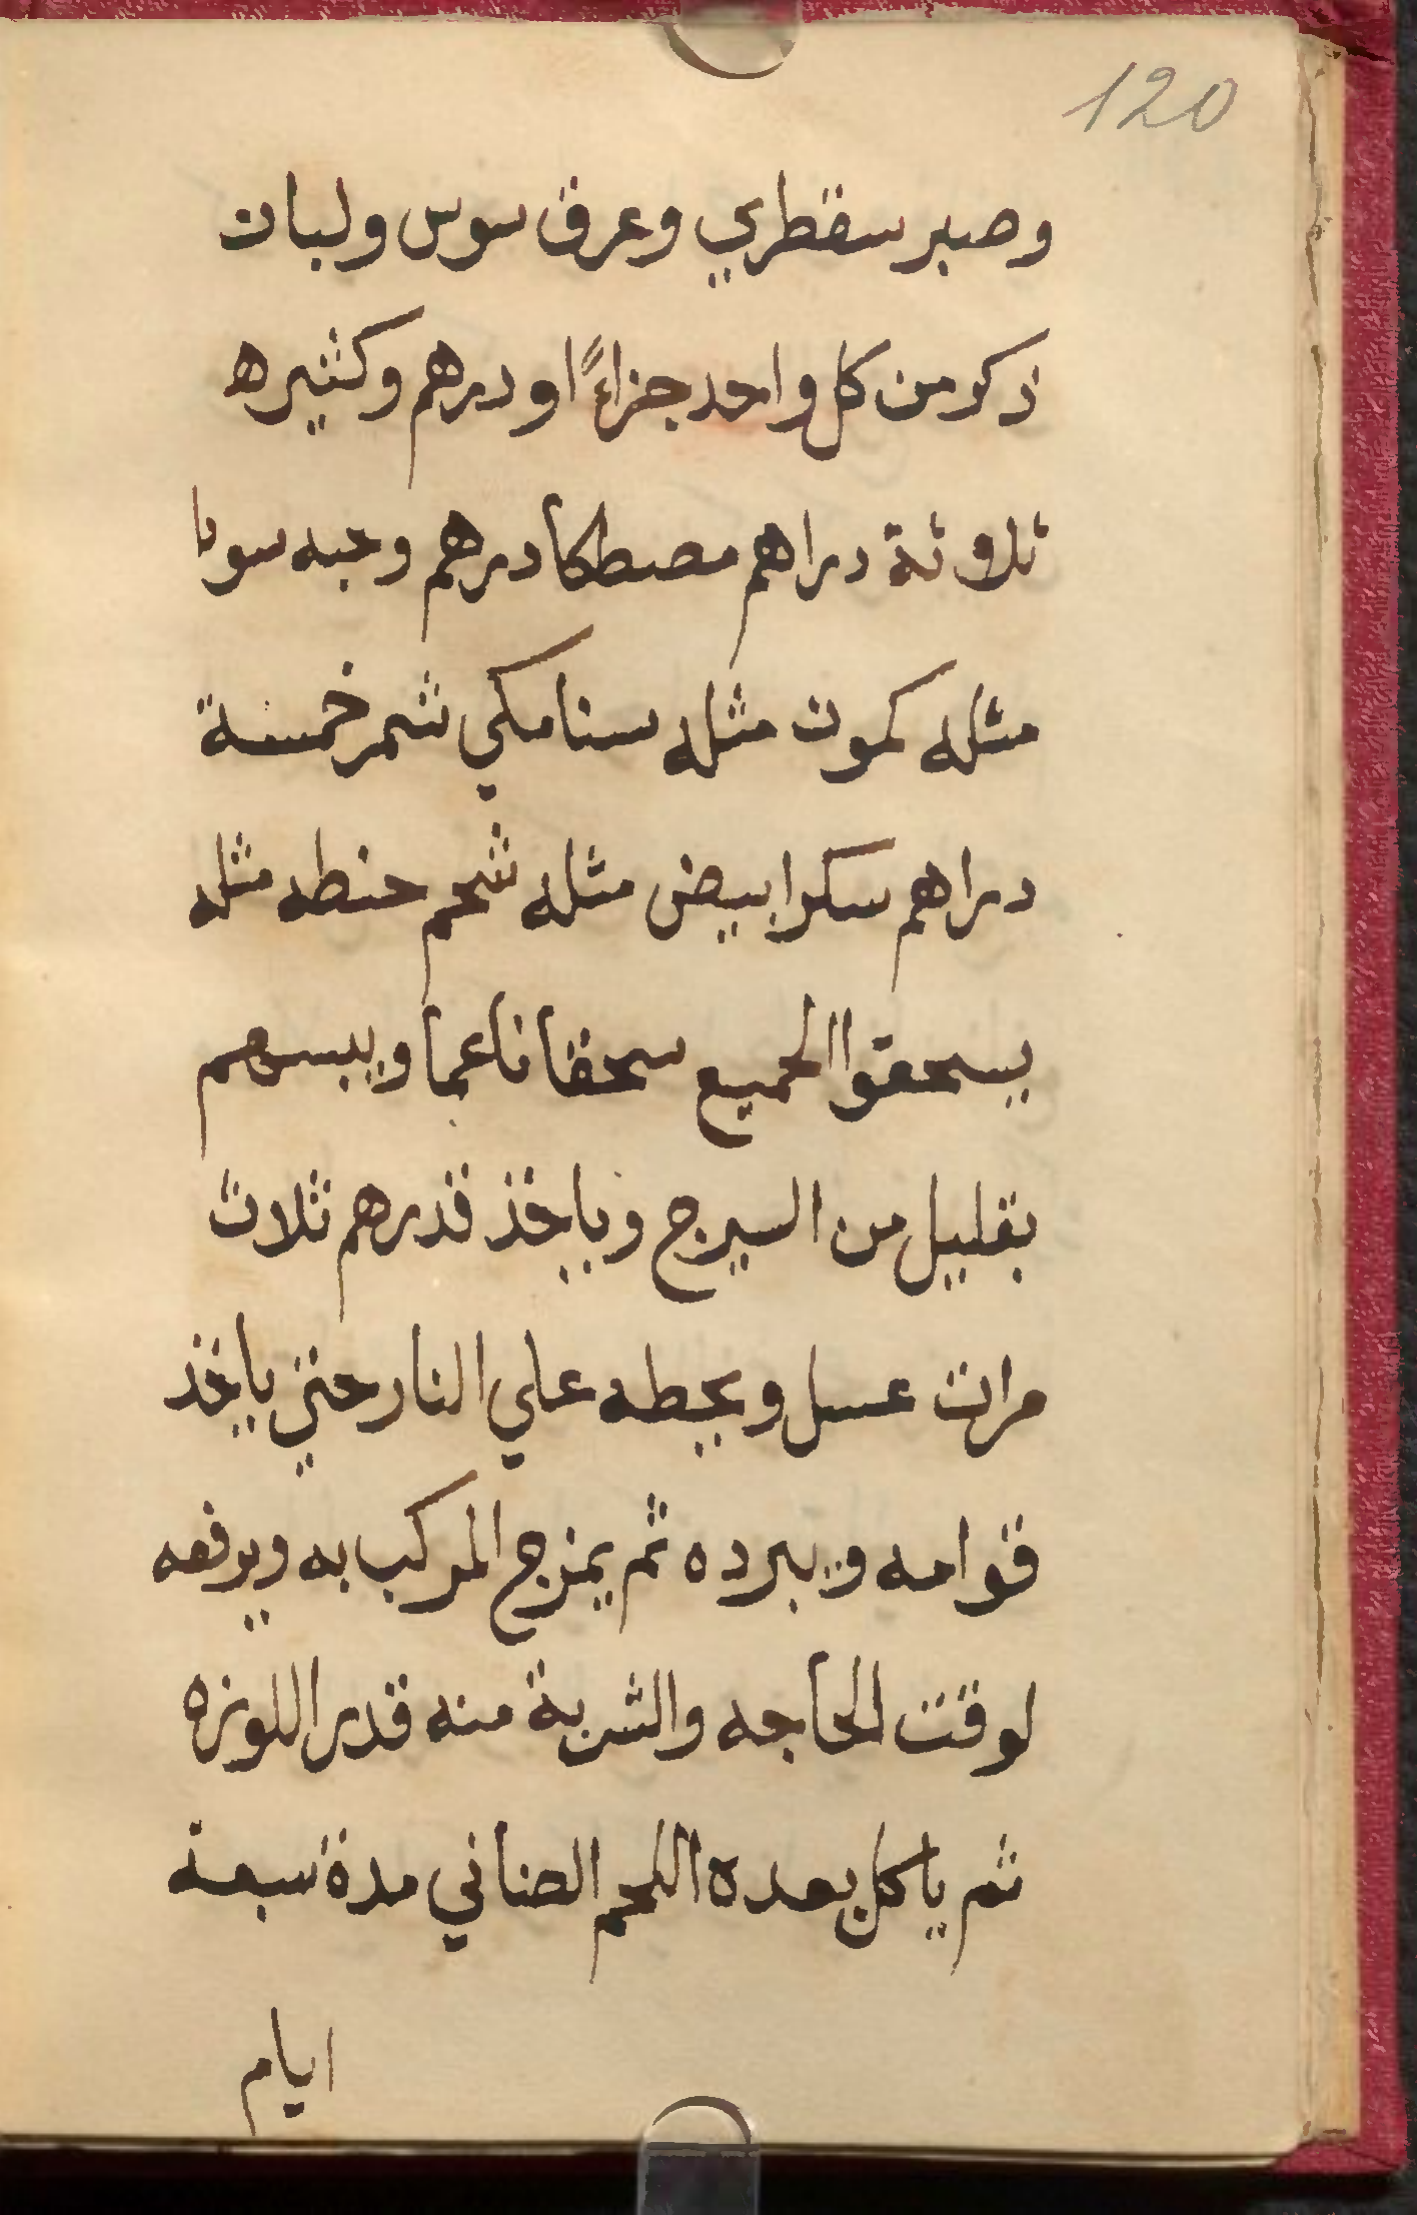 120
وصبر سقطري وعرق سوس ولبان
ذكر من كل واحد جزاءً او درهم وكثيره
ثلاوثة دراهم مصطكا درهم وحبه سودا
مثله كمون مثله سنا مكي شمر خمسة
دراهم سكر ابيض مثله شحم حنطه مثله
يسحقوا الجميع سحقا ناعما ويبسهم
بقليل من السيرج وياخذ قدرهم ثلاث
مرات عسل ويحطه علي النار حتي ياخذ
قوامه ويبرده ثم يمزج المركب به ويرفعه
لوقت الحاجه والشربة منه قدر اللوزه
ثم ياكل بعده اللحم الضاني مدة سبعة
ايام